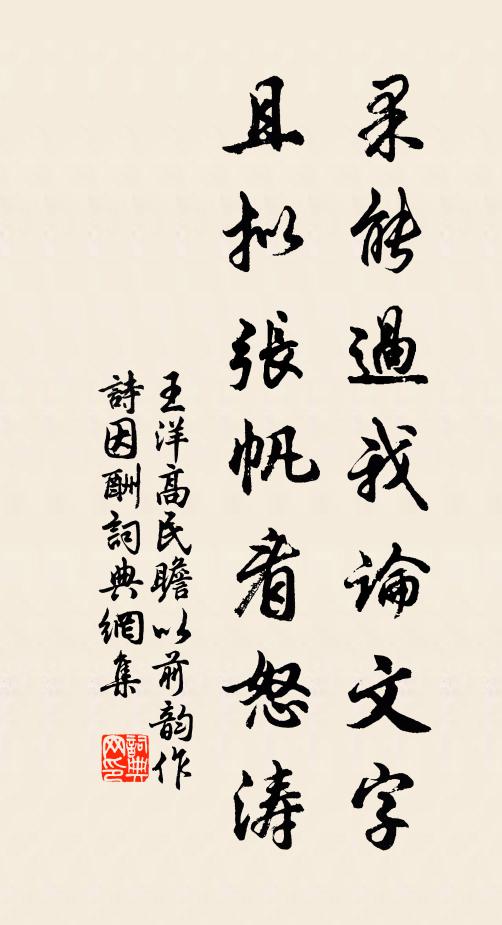 果能過我論文字
且拟張帆看怒涛
王洋高民瞻以前韵作
詩因酬詞典網集
詞典網印